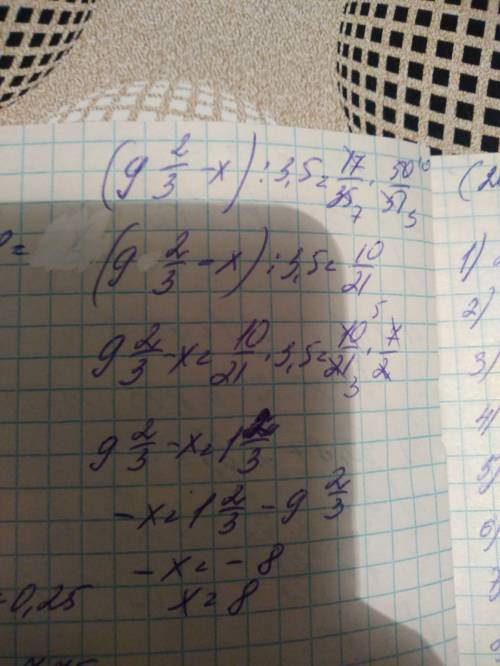 (9 2/3 - x) : 3,5 = 17/35 7 · 50 10/51 3
(9 2/3 - x) : 3,5 = 10/21
9 2/3 - x = 10/21 · 3,5 = 10 5/21 3 · 7/2
9 2/3 - x = 1 2/3
-x = 1 2/3 - 9 2/3
-x = -8
x = 8
0,25
(2
1)
2)
3)
4)
5)
6)